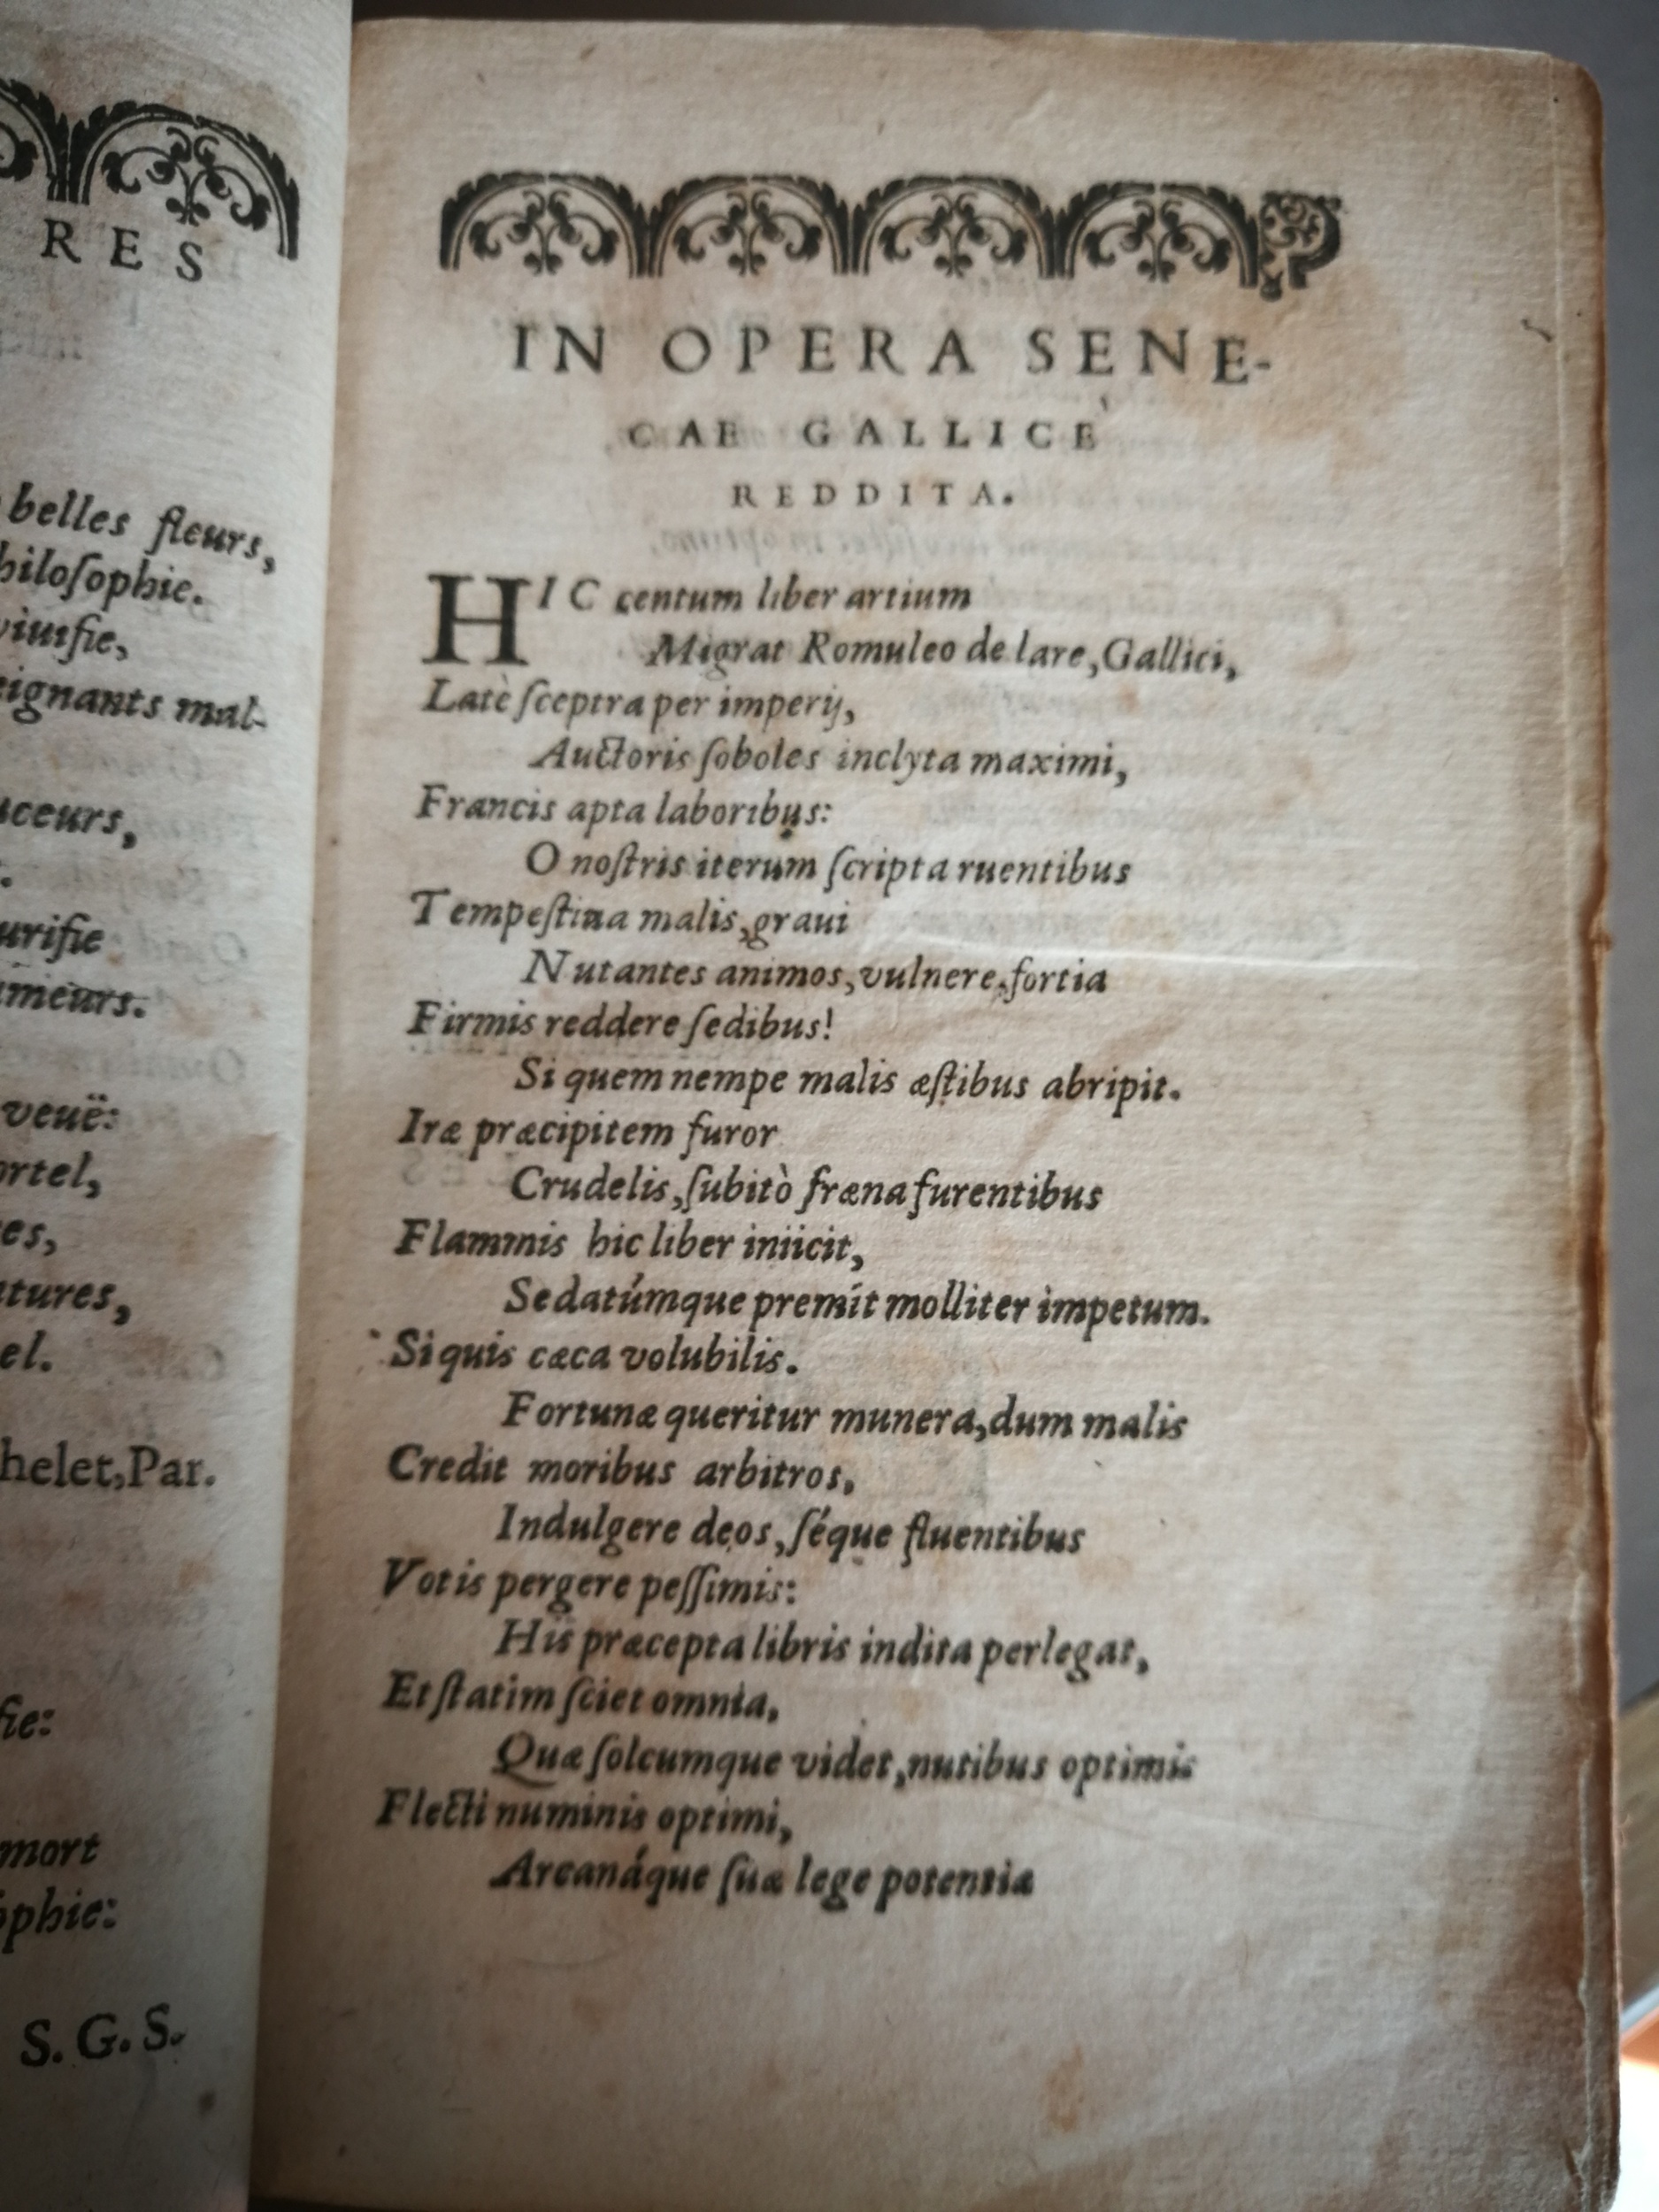 RES
belles fleurs,
hiloſophie.
viuifie,
eignants mal-
ceurs,
urifie
meurs.
veuë:
ortel,
es,
tures,
el.
helet,Par.
fie:
mort
ophie:
S. G. S.
IN OPERA SENE-
CAE GALLICÈ
REDDITA.
HIC centum liber artium
Migrat Romuleo de lare,Gallici,
Latè ſceptra per imperij,
Auctoris ſoboles inclyta maximi,
Francis apta laboribus:
O noſtris iterum ſcripta ruentibus
Tempeſtiua malis,graui
Nutantes animos,vulnere,fortia
Firmis reddere ſedibus!
Si quem nempe malis æſtibus abripit.
Iræ præcipitem furor
Crudelis,ſubitò fræna furentibus
Flammis hic liber iniicit,
Sedatúmque premit molliter impetum.
Si quis cæca volubilis.
Fortunæ queritur munera,dum malis
Credit moribus arbitros,
Indulgere deos,ſéque fluentibus
Votis pergere peſſimis:
His præcepta libris indita perlegat,
Et ſtatim ſciet omnia,
Quæ ſolcumque videt,nutibus optimis
Flecti numinis optimi,
Arcanáque ſuæ lege potentiæ